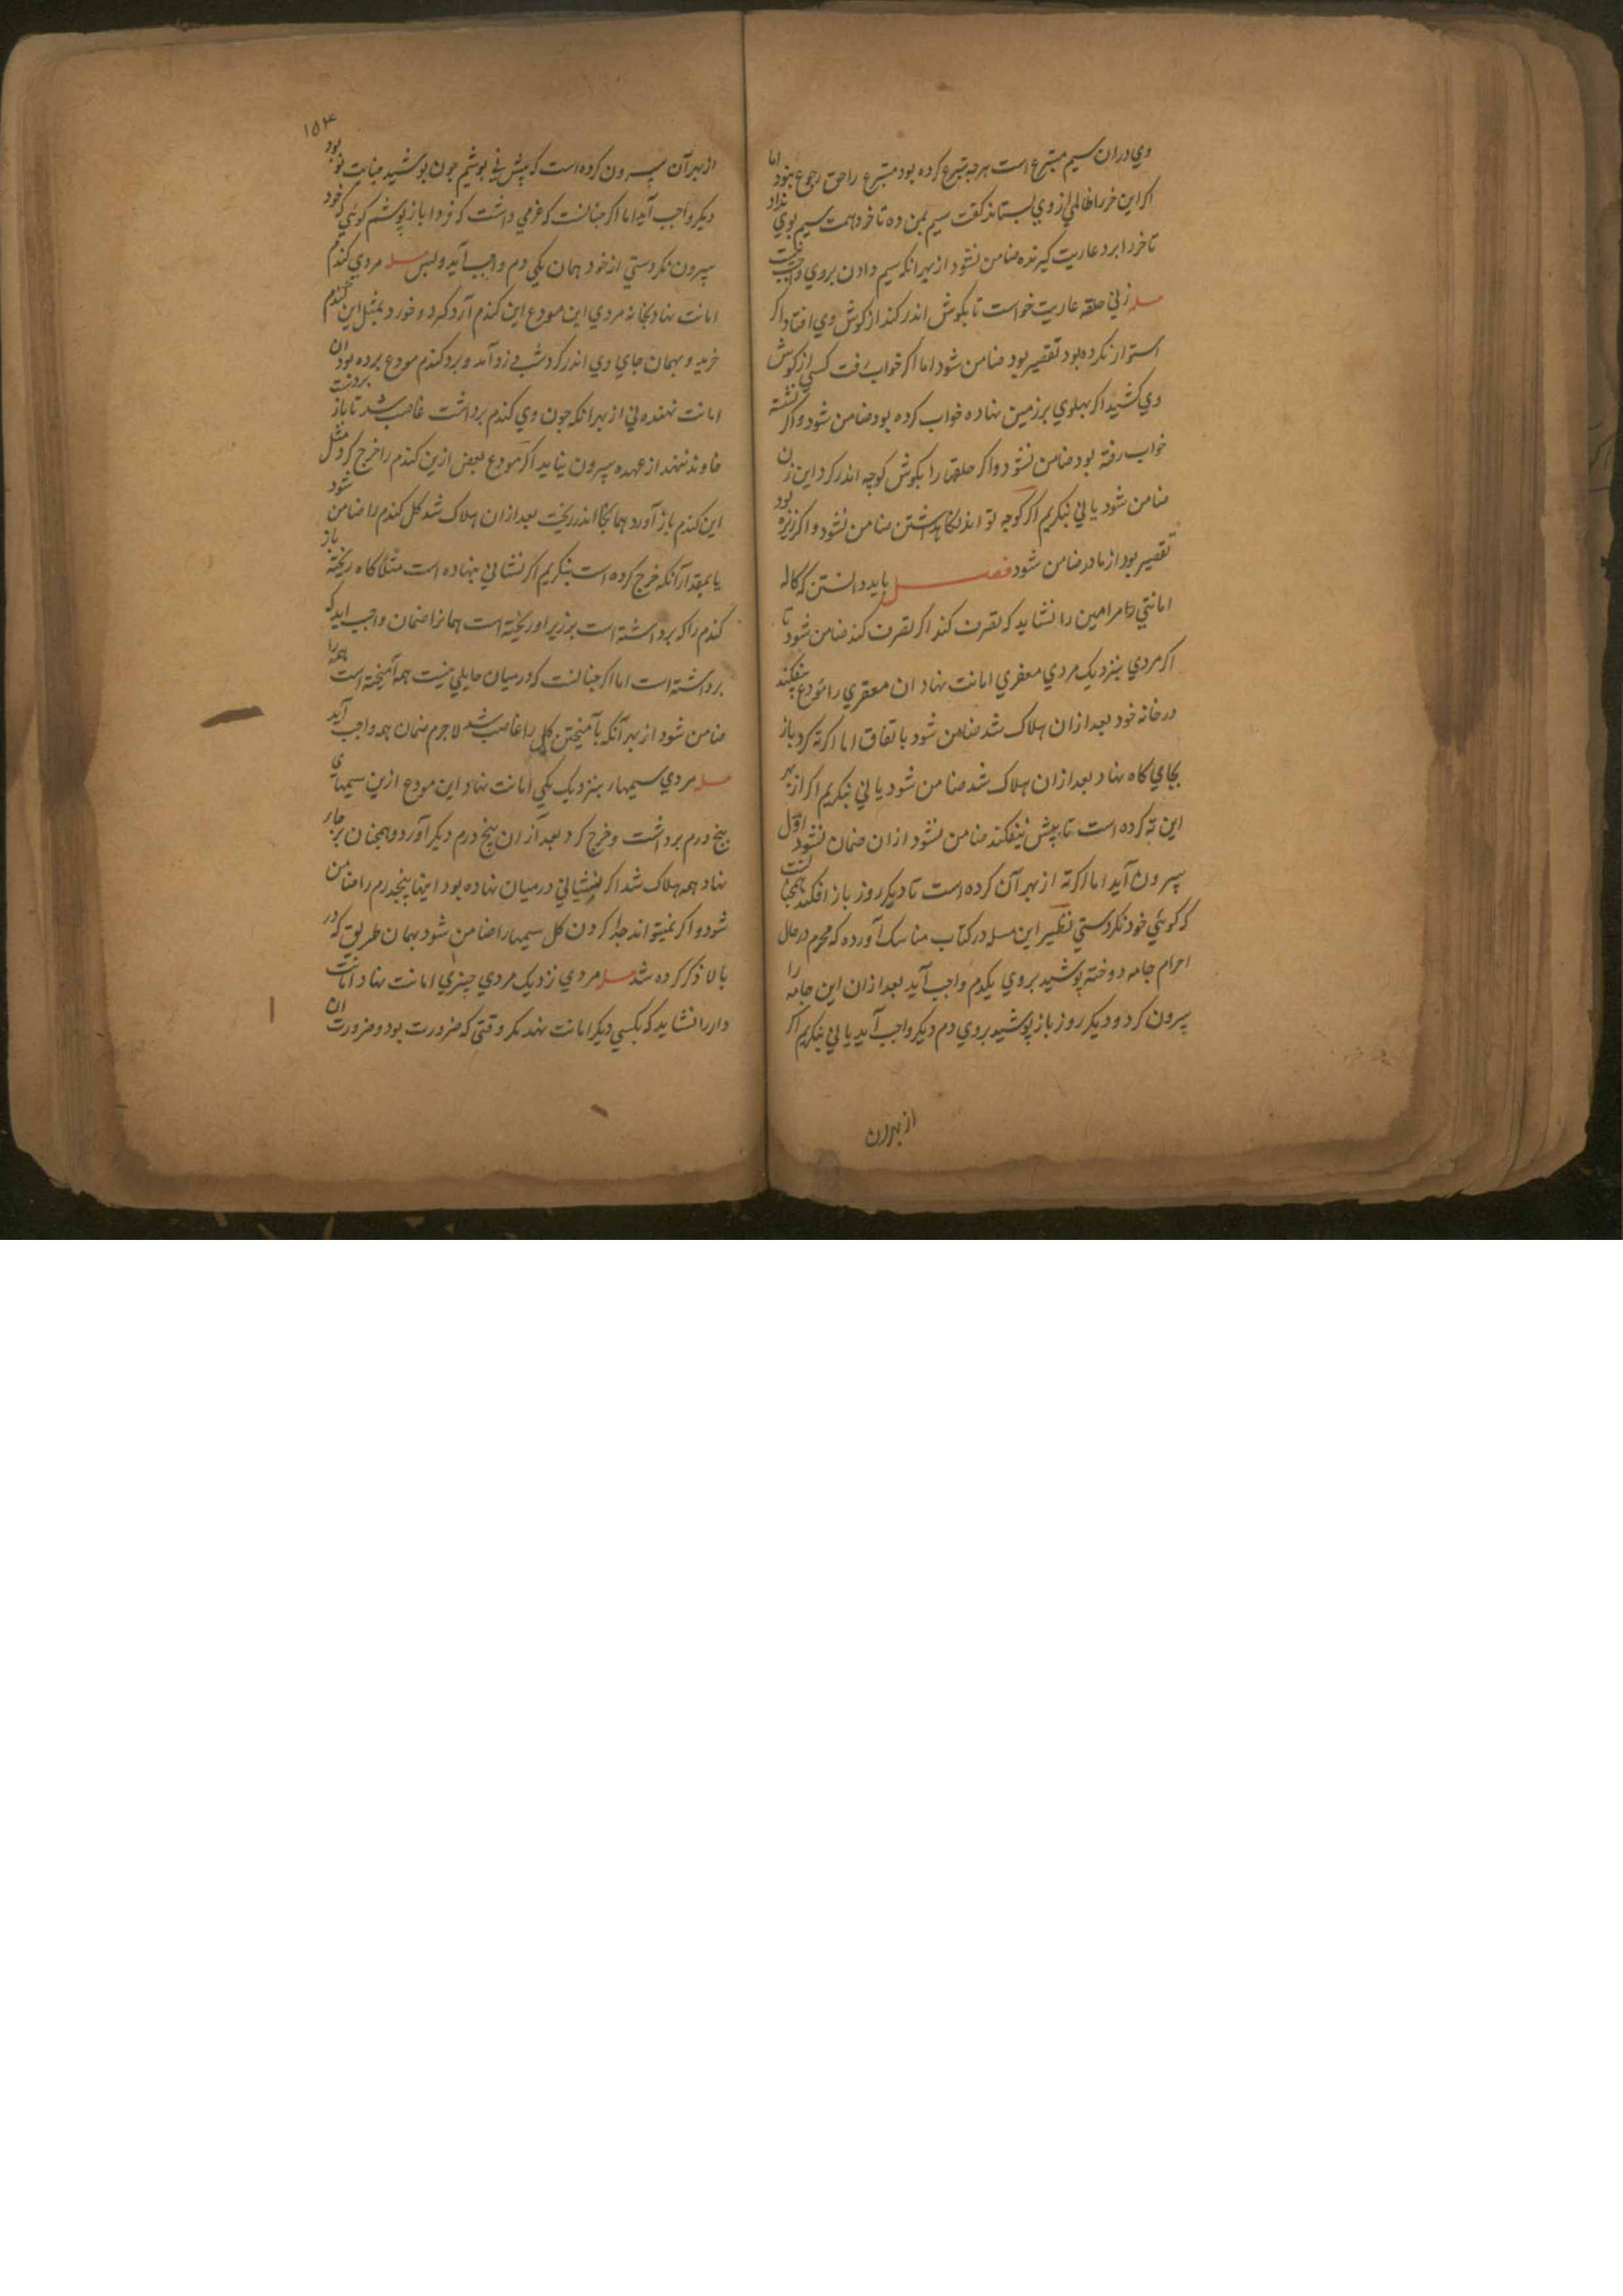 وي دران سيم متبرع است هرچه تبرع كرده بود متبرع را حق رجوع نبود اما
اكر اين خر را ظالمي از وي بستاند كفت سيم بمن ده تا خر دهمت سيم بوي نداد
تا خر را ببرد عاريت كيرنده ضامن نشود از بهر انكه سيم دادن بروي واجب نيست
مسله زني حلقه عاريت خواست تا بكوش اندر كند از كوش وي افتاد اكر
استوار نكرده بود تقصير بود ضامن شود اما اكر خواب رفت كسي از كوش
وي كشيد اكر پهلوي برزمين نهاده خواب كرده بود ضامن شود و اكر نشسته
خواب رفته بود ضامن نشود و اكر حلقها را بكوش كوچه اندر كرد اين زن
ضامن شود يا ني بنكريم اكر كوچه تواند نكاهداشتن ضامن نشود و اكر ريزه بود
تقصير بود از مادر ضامن شود فصل بايد دانستن كه كاله
امانتي را مر امين را نشايد كه تصرف كند اكر تصرف كند ضامن شود تا
اكر مردي بنزديك مردي معفري امانت نهاد ان معفري را مودع بيفكند
در خانه خود بعد ازان هلاك شد ضامن شود باتفاق اما اكر ته كرد باز
بجاي كاه نهاد بعد ازان هلاك شد ضامن شود يا ني بنكريم اكر از بهر
اين ته كرده است تا پيش نيفكند ضامن نشود ازان ضمان اول
بيرون آيد اما اكر ته از بهر آن كرده است تا ديكر روز باز افكند همچنانست
كه كوئي خود نكردستي نظير اين مسله در كتاب مناسك آورده كه محرم در حال
احرام جامه دوخته پوشيد بروي يكدم واجب آيد بعد ازان اين جامه را
بيرون كرد و ديكر روز باز پوشيد بروي دم ديكر واجب آيد يا ني بنكريم اكر
از بهر آن
۱۵۴
از بهر آن بيرون كرده است كه پيش ني پوشيم چون پوشيد جنايت نو بود
ديكر واجب آيد اما اكر چنانست كه عزمي داشت كه فردا باز پوشم كوئي كه خود
بيرون نكردستي از خود همان يكي دم واجب آيد و بس مسله مردي كندم
امانت نهاد بخانه مردي اين مودع اين كندم آرد كرد و خورد بمثل اين كندم
خريد و بهمان جاي وي اندر كرد شب دزد آمد و ببرد كندم مودع برده بود ان
امانت نهنده ني از بهر انكه چون وي كندم برداشت غاصب شد تا باز
خاوند ندهد از عهده بيرون نيايد اكر مودع بعض ازين كندم را خرج كرد مثل
اين كندم باز آورد همانجا اندر ريخت بعد ازان هلاك شد كل كندم را ضامن شود
يا بمقدار آنكه خرج كرده است بنكريم اكر نشاني بنهاده است مثلا كاه ريخته باز
كندم را كه برداشته است بر زير او ريخته است همانرا ضمان واجب ايد كه
برداشته است اما اكر چنانست كه در ميان حايلي نيست همه آميخته است همه را
ضامن شود از بهر آنكه بآميختن كل را غاصب شد لاجرم ضمان همه واجب آيد
مسله مردي سيمها بنزديك يكي امانت نهاد اين مودع ازين سيمهاي
پنج درم برداشت و خرج كرد بعد ازان پنج درم ديكر آورد و همچنان بر جاي
نهاد همه هلاك شد اكر نشاني در ميان نهاده بود اينها پنجدرم را ضامن
شود و اكر نميتواند جدا كردن كل سيمها را ضامن شود بهمان طريق كه در
بالا ذكر كرده شد مسله مردي نزديك مردي چيزي امانت نهاد امانت
دار را نشايد كه بكسي ديكر امانت نهد مكر وقتي كه ضرورت بود و ضرورت ان